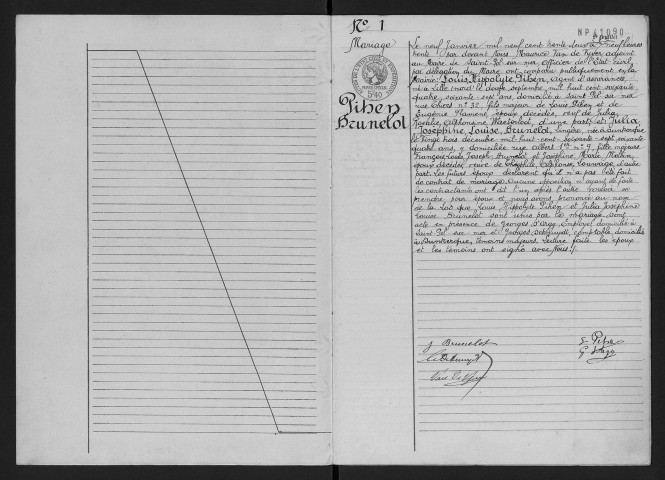 N° 1
Mariage
Pihen
Brunelot
Le neuf Janvier mil neuf cent trente deux à neuf heures
trente par devant Nous Maurice Van de Kever adjoint
au Maire de Saint Pol sur mer, Officier de l'Etat Civil
par délégation du Maire ont comparu publiquement en la
Mairie: Louis Hippolyte Pihen, Agent d'assurances,
né à Lille (Nord) le douze septembre mil huit cent soixante
quatre, soixante sept ans, domicilié à Saint Pol sur mer
rue Thiers n° 32, fils majeur de Louis Pihen et de
Eugénie Flament, époux décédés, veuf de Julia,
Alphonsine d'une part; et Julia
Joséphine Louise Brunelot, lingère, née à Dunkerque
le vingt trois décembre mil huit cent soixante sept, soixante
quatre ans, y domiciliée rue Albert 1er n° 9, fille majeure
François Louis Joseph Brunelot et Joséphine Marie
époux décédés, veuve de Théophile Alphonse d'autre
part. Les futurs époux déclarent qu'il n'a pas été fait
de contrat de mariage. Aucune opposition n'ayant été faite
les contractants ont dit l'un après l'autre vouloir se
prendre pour époux et nous avons prononcé au nom
de la Loi que Louis Hippolyte Pihen et Julia Joséphine
Louise Brunelot sont unis par le mariage, dont
acte en présence de Georges Employé domicilié à
Saint Pol sur mer et Georges comptable domicilié
à Dunkerque, témoins majeurs. Lecture faite les époux
et les témoins ont signé avec Nous./.
J Brunelot